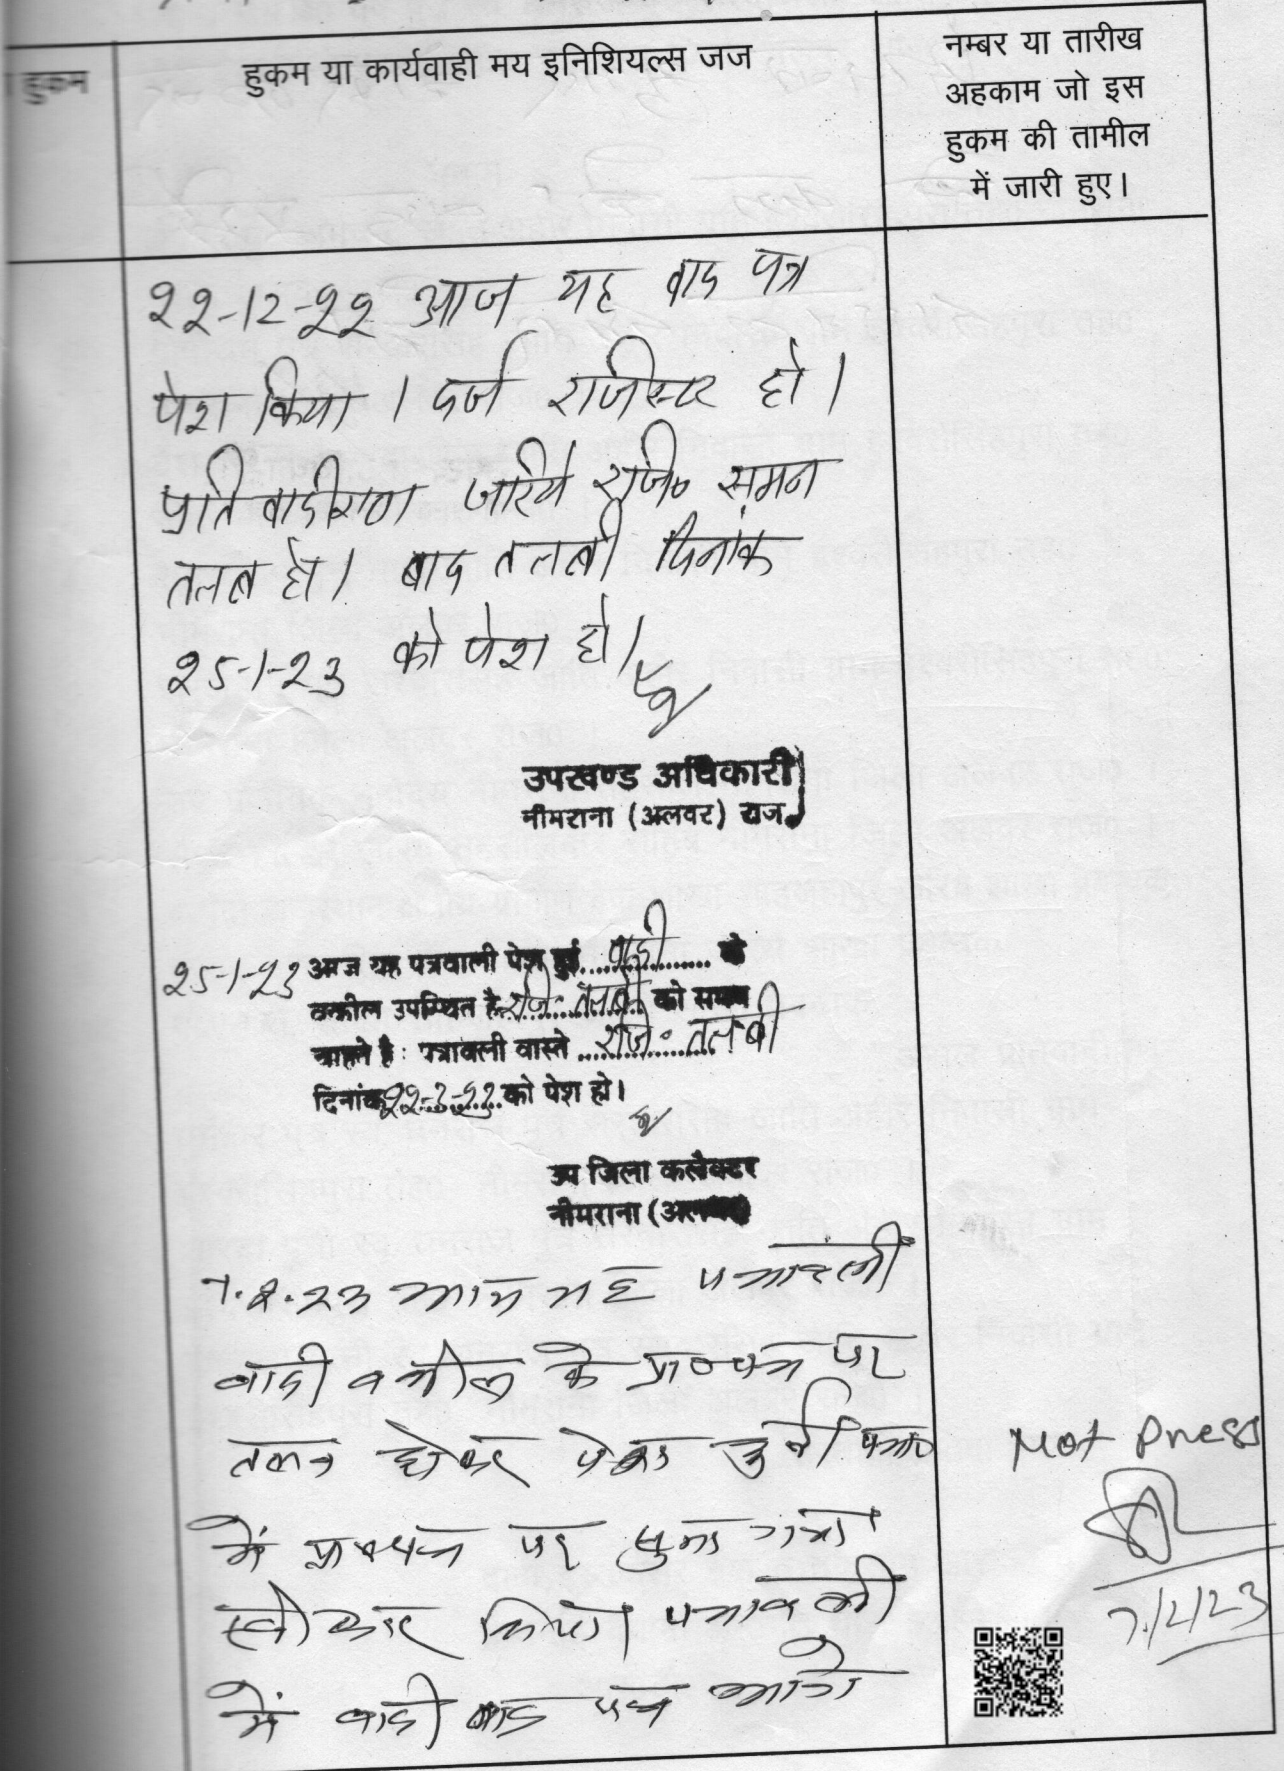 हुकम
हुकम या कार्यवाही मय इनिशियल्स जज
नम्बर या तारीख
अहकाम जो इस
हुकम की तामील
में जारी हुए।
22-12-22 आज यह वाद पत्र
पेश किया । दर्ज रजिस्टर हो ।
प्रतिवादीगण जरिये रजि० समन
तलब हो । बाद तलबी दिनांक
25-1-23 को पेश हो ।
उपखण्ड अधिकारी
नीमराना (अलवर) राज.
25-1-23 आज यह पत्रवाली पेश हुई.....वादी.....के
वकील उपस्थित है रजि. तलबी को समय
चाहते है : पत्रावली वास्ते रजि. तलबी
दिनांक 22-3-23 को पेश हो ।
उप जिला कलेक्टर
नीमराना (अलवर)
7.2.23 आज यह पत्रावली
वादी वकील के प्रा०पत्र पर
तलब होकर पेश हुई पत्रा०
में प्रा०पत्र पर सुना गया
स्वीकार किया पत्रावली
में वादी वाद पत्र आगे
Not Press
7/2/23